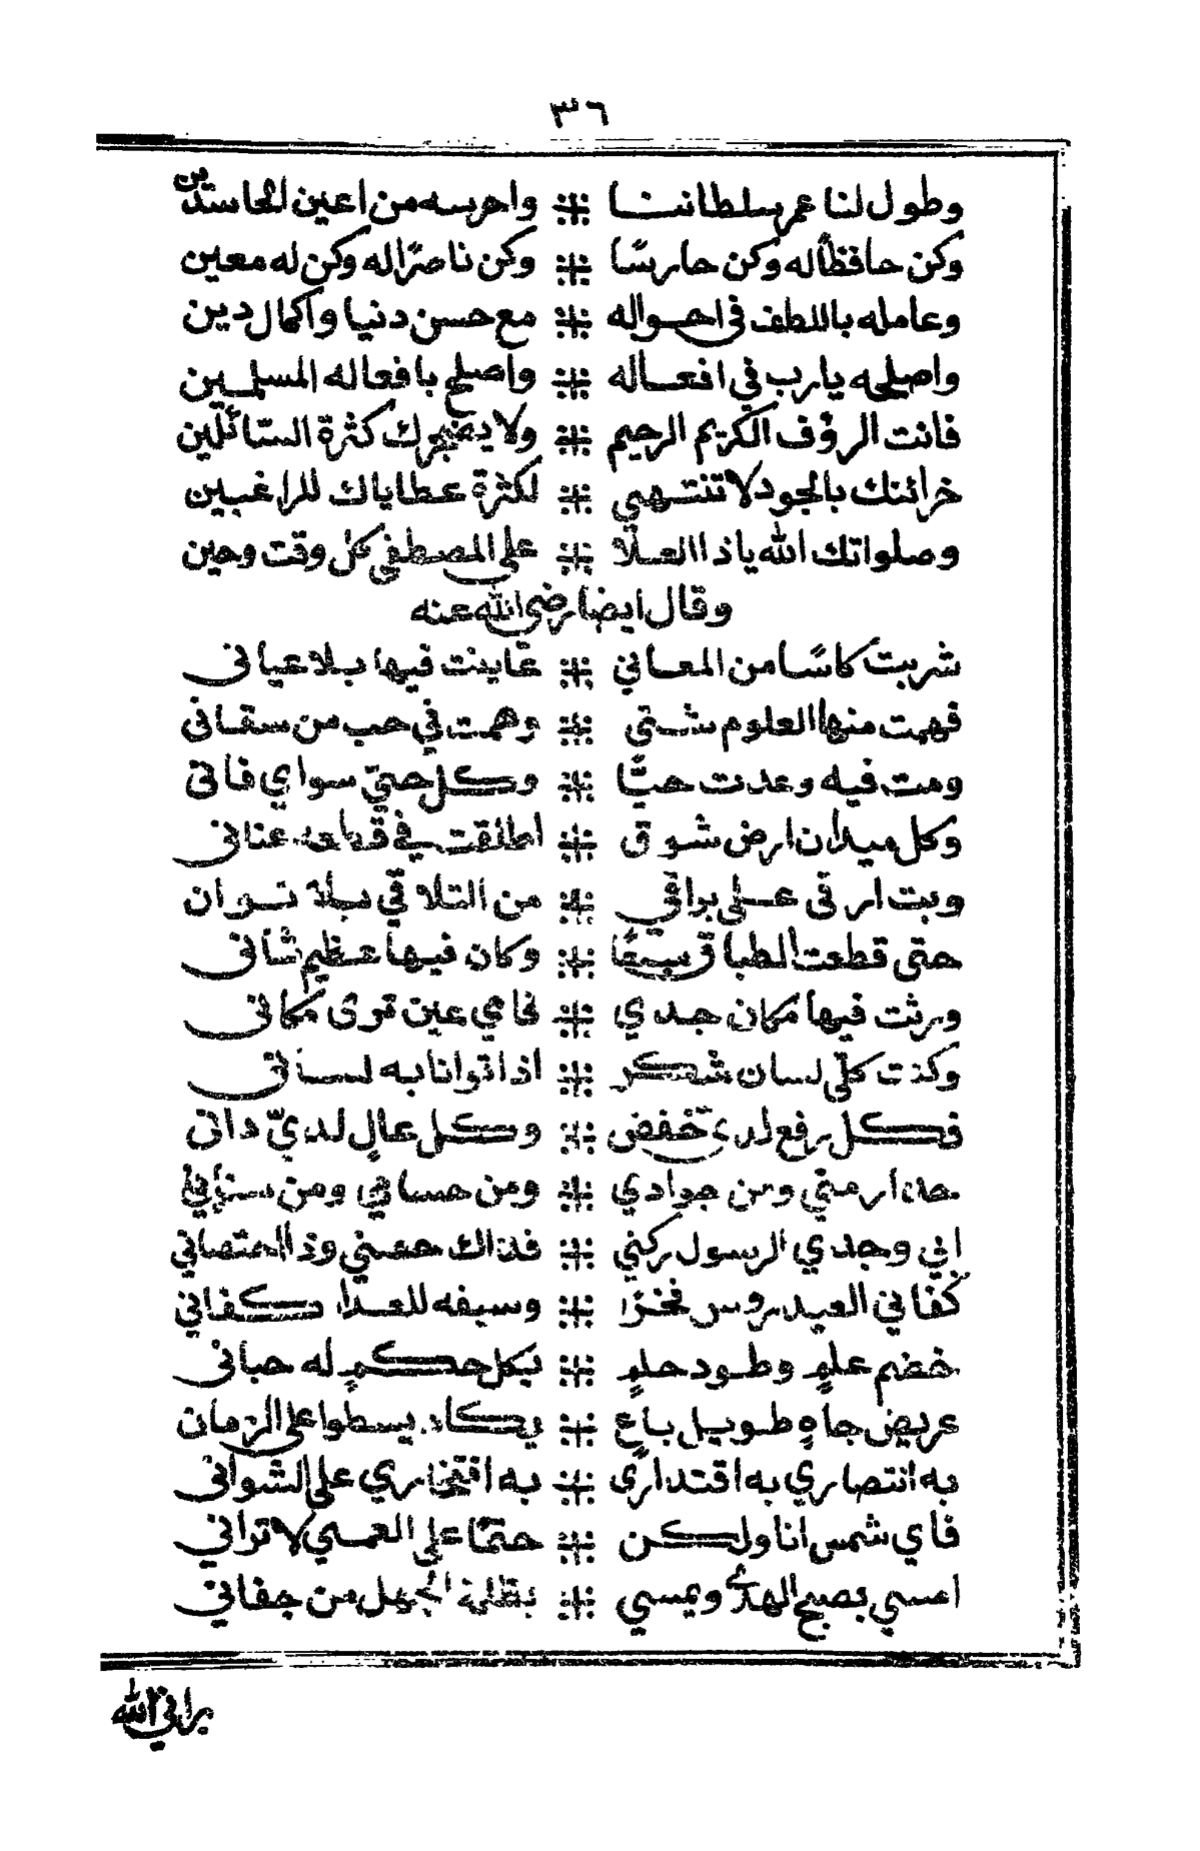 ٣٦
وطول لنا عمر سلطاننا ⁜ واحرسه من اعين الحاسدين
وكن حافظًا له وكن حارسًا ⁜ وكن ناصرًا له وكن له معين
وعامله باللطف فى احواله ⁜ مع حسن دنيا واكمال دين
واصلحه يارب في افعاله ⁜ واصلح بافعاله المسلمين
فانت الرؤف الكريم الرحيم ⁜ ولا يضجرك كثرة السّائلين
خزائنك بالجود لا تنتهي ⁜ لكثرة عطاياك للراغبين
وصلواتك الله ياذا العلا ⁜ على المصطفى كل وقت وحين
وقال ايضا رضى الله عنه
شربت كاسًا من المعاني ⁜ عاينت فيها بلا عيانى
فهمت منها العلوم شتى ⁜ وهمت في حب من سقانى
ومت فيه وعدت حيًّا ⁜ وكل حيّ سواي فانى
وكل ميدان ارض شوق ⁜ اطلقت في قطعه عنانى
وبت ارقى على براقي ⁜ من التلاقي بلا توان
حتى قطعت الطباق سبقًا ⁜ وكان فيها عظيم شانى
ورثت فيها مكان جدي ⁜ فاي عين ترى مكانى
وكنت كلّي لسان شكر ⁜ اذا توانا به لسانى
فكل رفع لديّ خفض ⁜ وكل عالٍ لديّ دانى
ومن جوادي ⁜ ومن حسامي ومن سناني
ابي وجدي الرسول ركني ⁜ فذاك حصني وذا
كفاني العيدروس فخرًا ⁜ وسيفه للعدا كفاني
خضم علمٍ وطود حلمٍ ⁜ بكل حكمٍ له حبانى
عريض جاهٍ طويل باعٍ ⁜ يكاد يسطوا على الزمان
به انتصاري به اقتداري ⁜ به افتخاري على الشوانى
فاي شمس انا ولكن ⁜ حتمًا على العمي لا تراني
امسي بصبح الهدى ويمسي ⁜ بظلمة الجهل من جفاني
براني الله